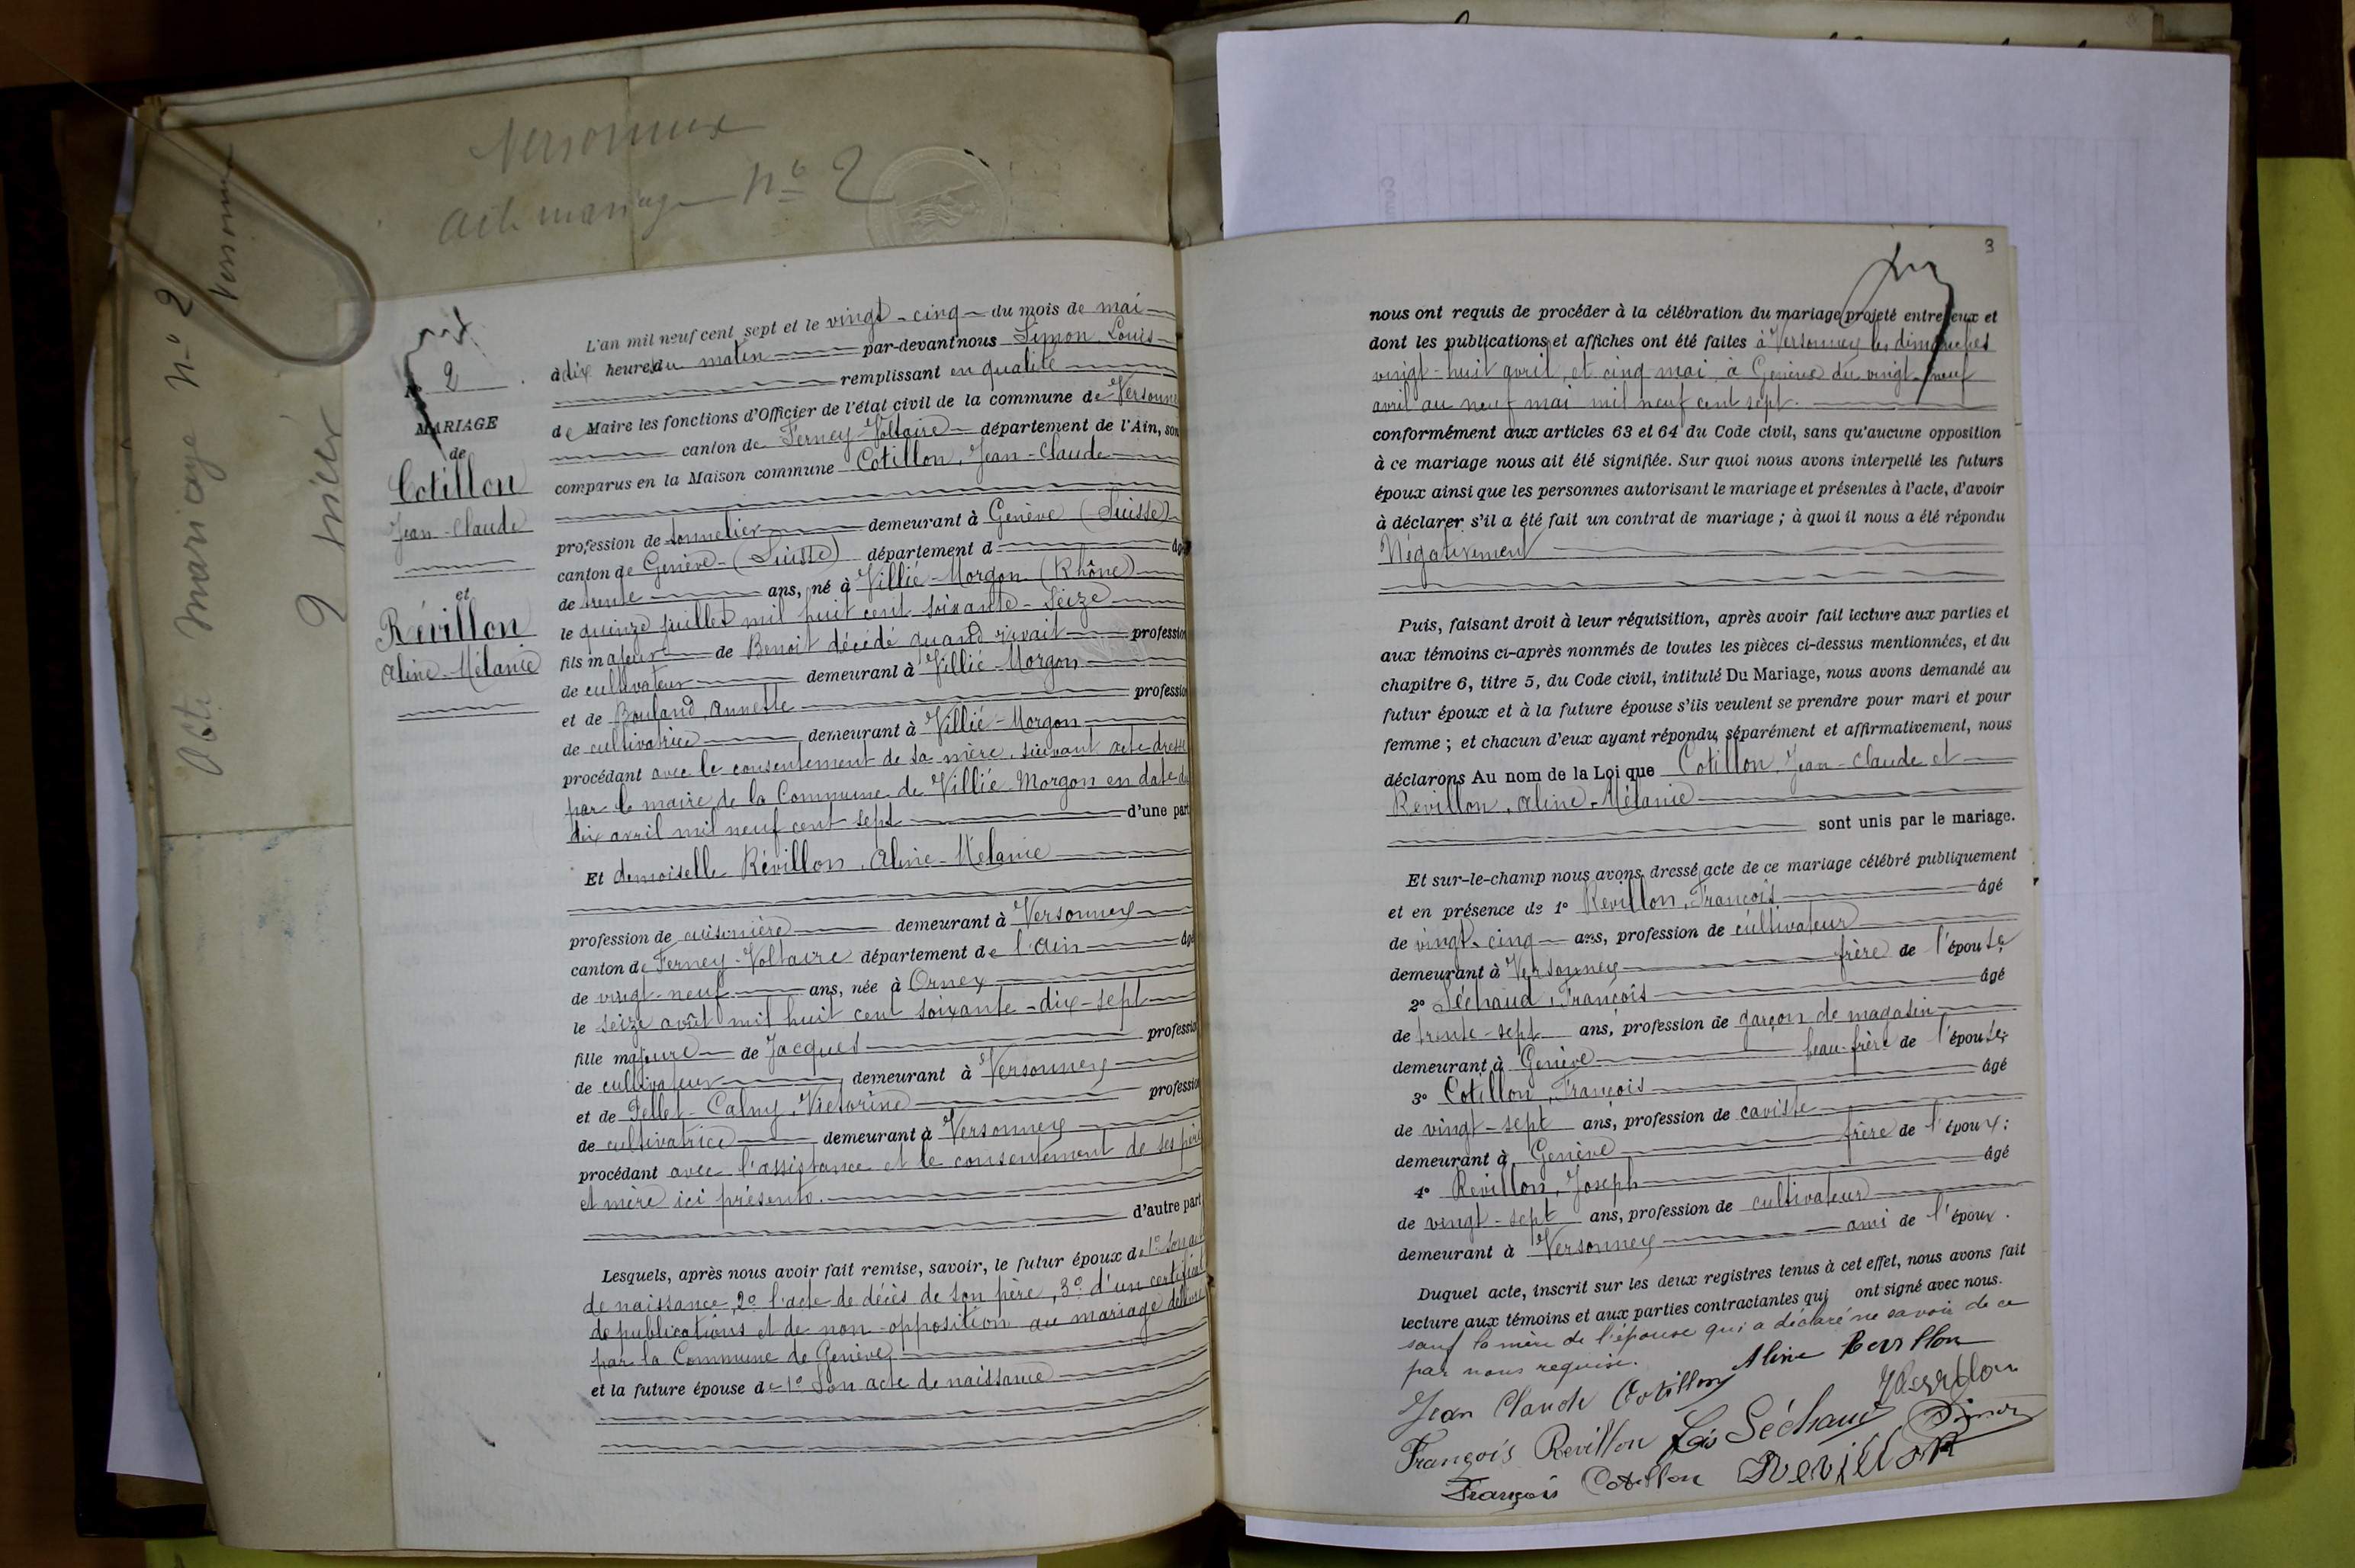 Versonnex
Acte mariage No 2
Acte Mariage No 2
Versonnex
2
No 2
MARIAGE
de
Cotillon
Jean-Claude
et
Révillon
Aline-Mélanie
L'an mil neuf cent sept et le vingt-cinq du mois de mai
à dix heures du matin par-devant nous Simon Louis
remplissant en qualité
de Maire les fonctions d'Officier de l'état civil de la commune de Versonne
canton de Ferney-Voltaire département de l'Ain, son
comparus en la Maison commune Cotillon, Jean-Claude
profession de tonnelier demeurant à Genève (Suisse)
canton de Genève-(Suisse) département d âgé
de trente ans, né à Villié-Morgon (Rhône)
le quinze juillet mil huit cent soixante-seize
fils majeur de Benoit décédé quand vivait profession
de cultivateur demeurant à Villié-Morgon
et de Bouland, Annette profession
de cultivatrice demeurant à Villié-Morgon
procédant avec le consentement de sa mère, suivant acte dressé
par le maire de la Commune de Villié Morgon en date du
dix avril mil neuf cent sept d'une part
Et demoiselle Révillon, Aline-Mélanie
profession de cuisinière demeurant à Versonnex
canton de Ferney-Voltaire département de l'Ain âgé
de vingt-neuf ans, née à Ornex
le seize août mil huit cent soixante-dix-sept
fille majeure de Jacques profession
de cultivateur demeurant à Versonnex
et de Pellet-Calny, Victorine profession
de cultivatrice demeurant à Versonnex
procédant avec l'assistance et le consentement de ses père
et mère ici présents.
d'autre part
Lesquels, après nous avoir fait remise, savoir, le futur époux de 1o son acte
de naissance, 2o l'acte de décès de son père, 3o d'un certificat
de publications et de non-opposition au mariage délivré
par la Commune de Genève
et la future épouse de 1o Son acte de naissance
3
nous ont requis de procéder à la célébration du mariage projeté entre eux et
dont les publications et affiches ont été faites à Versonnex les dimanches
vingt-huit avril et cinq mai à Genève du vingt-neuf
avril au neuf mai mil neuf cent sept.
conformément aux articles 63 et 64 du Code civil, sans qu'aucune opposition
à ce mariage nous ait été signifiée. Sur quoi nous avons interpellé les futurs
époux ainsi que les personnes autorisant le mariage et présentes à l'acte, d'avoir
à déclarer s'il a été fait un contrat de mariage ; à quoi il nous a été répondu
Négativement
Puis, faisant droit à leur réquisition, après avoir fait lecture aux parties et
aux témoins ci-après nommés de toutes les pièces ci-dessus mentionnées, et du
chapitre 6, titre 5, du Code civil, intitulé Du Mariage, nous avons demandé au
futur époux et à la future épouse s'ils veulent se prendre pour mari et pour
femme ; et chacun d'eux ayant répondu, séparément et affirmativement, nous
déclarons Au nom de la Loi que Cotillon, Jean-Claude et
Révillon, Aline-Mélanie
sont unis par le mariage.
Et sur-le-champ nous avons dressé acte de ce mariage célébré publiquement
et en présence de 1o Revillon, François âgé
de vingt-cinq ans, profession de cultivateur
demeurant à Versonnex frère de l'épouse
2o Séchaud, François âgé
de trente-sept ans, profession de garçon de magasin
demeurant à Genève beau-frère de l'épouse;
3o Cotillon, François âgé
de vingt-sept ans, profession de caviste
demeurant à Genève frère de l'époux;
4o Revillon, Joseph âgé
de vingt-sept ans, profession de cultivateur
demeurant à Versonnex ami de l'époux.
Duquel acte, inscrit sur les deux registres tenus à cet effet, nous avons fait
lecture aux témoins et aux parties contractantes qui ont signé avec nous.
sauf la mère de l'épouse qui a déclaré ne savoir de ce
par nous requise.
Jean Claude Cotillon Aline Revillon
François Revillon Fçois Séchaud JRevillon
François Cotillon Revillon Simon